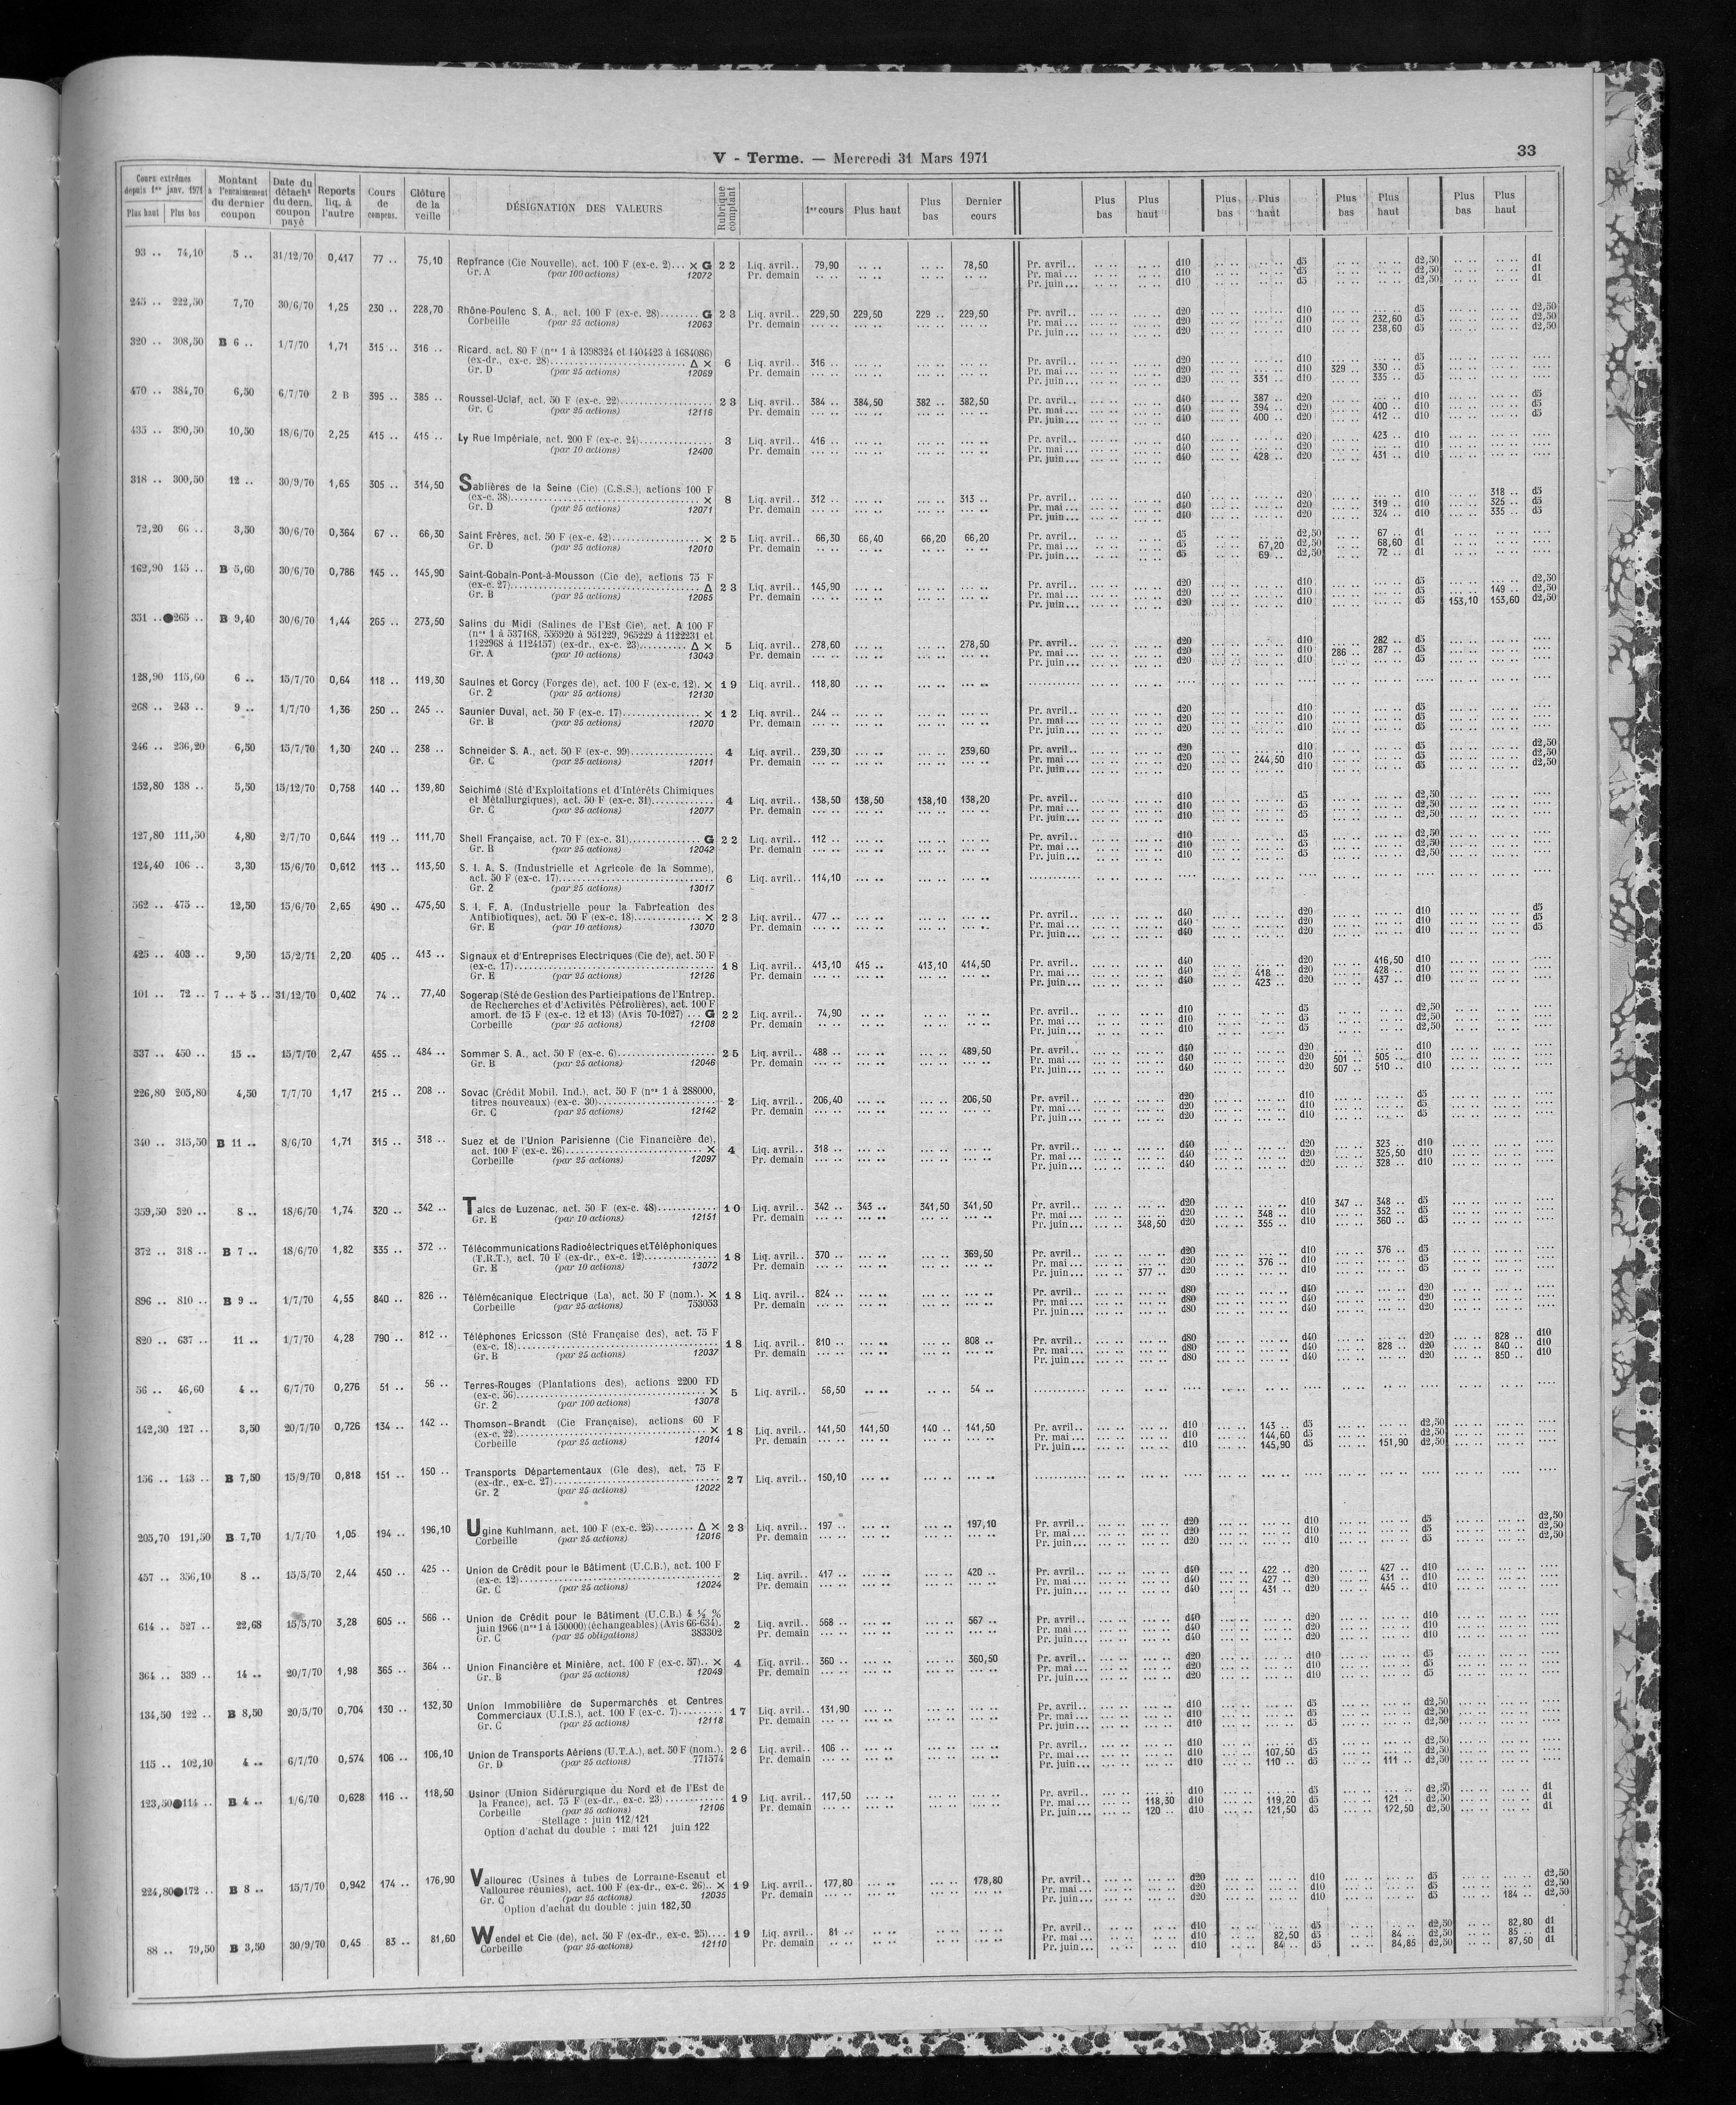 V - Terme. — Mercredi 31 Mars 1971
33
Cours extrêmes depuis 1er janv. 1971 Plus haut Plus bas | Montant à l'encaissement du dernier coupon | Date du détacht du dern. coupon payé | Reports liq. à l'autre | Cours de compens. | Clôture de la veille | DÉSIGNATION DES VALEURS | Rubrique comptant | 1er cours | Plus haut | Plus bas | Dernier cours | Plus bas | Plus haut | Plus bas | Plus haut | Plus bas | Plus haut | Plus bas | Plus haut
93 .. 74,10 5 .. 31/12/70 0,417 77 .. 75,10 Repfrance (Cie Nouvelle), act. 100 F (ex-c. 2)... × G 22 Liq. avril.. 79,90 .... .... 78,50 Pr. avril.. d10 d5 d2,50 d1
Gr. A (par 100 actions) 12072 Pr. demain Pr. mai... d10 d5 d2,50 d1
Pr. juin... d10 d5 d2,50 d1
245 .. 222,50 7,70 30/6/70 1,25 230 .. 228,70 Rhône-Poulenc S. A., act. 100 F (ex-c. 28)........ G 23 Liq. avril.. 229,50 229,50 229 .. 229,50 Pr. avril.. d20 d10 d5 d2,50
Corbeille (par 25 actions) 12063 Pr. demain Pr. mai... d20 d10 232,60 d5 d2,50
Pr. juin... d20 d10 238,60 d5 d2,50
320 .. 308,50 B 6 .. 1/7/70 1,71 315 .. 316 .. Ricard, act. 80 F (nos 1 à 1398324 et 1404423 à 1684086)
(ex-dr., ex-c. 28)........ Δ × 6 Liq. avril.. 316 .. Pr. avril.. d20 d10 d5
Gr. D (par 25 actions) 12069 Pr. demain Pr. mai... d20 d10 329 .. 330 .. d5
Pr. juin... d20 331 .. d10 335 .. d5
470 .. 384,70 6,50 6/7/70 2 B 395 .. 385 .. Roussel-Uclaf, act. 50 F (ex-c. 22)........ 23 Liq. avril.. 384 .. 384,50 382 .. 382,50 Pr. avril.. d40 387 .. d20 d10 d5
Gr. C (par 25 actions) 12116 Pr. demain Pr. mai... d40 394 .. d20 400 .. d10 d5
Pr. juin... d40 400 .. d20 412 .. d10 d5
435 .. 390,50 10,50 18/6/70 2,25 415 .. 415 .. Ly Rue Impériale, act. 200 F (ex-c. 24)........ 3 Liq. avril.. 416 .. Pr. avril.. d40 d20 423 .. d10
(par 10 actions) 12400 Pr. demain Pr. mai... d40 d20 d10
Pr. juin... d40 428 .. d20 431 .. d10
318 .. 300,50 12 .. 30/9/70 1,65 305 .. 314,50 Sablières de la Seine (Cie) (C.S.S.), actions 100 F
(ex-c. 38)........ × 8 Liq. avril.. 312 .. 313 .. Pr. avril.. d40 d20 d10 318 .. d5
Gr. D (par 25 actions) 12071 Pr. demain Pr. mai... d40 d20 319 .. d10 325 .. d5
Pr. juin... d40 d20 324 .. d10 335 .. d5
72,20 66 .. 3,50 30/6/70 0,364 67 .. 66,30 Saint Frères, act. 50 F (ex-c. 42)........ × 25 Liq. avril.. 66,30 66,40 66,20 66,20 Pr. avril.. d5 d2,50 67 .. d1
Gr. D (par 25 actions) 12010 Pr. demain Pr. mai... d5 67,20 d2,50 68,60 d1
Pr. juin... d5 69 .. d2,50 72 .. d1
162,90 145 .. B 5,60 30/6/70 0,786 145 .. 145,90 Saint-Gobain-Pont-à-Mousson (Cie de), actions 75 F
(ex-c. 27)........ Δ 23 Liq. avril.. 145,90 Pr. avril.. d20 d10 d5 d2,50
Gr. B (par 25 actions) 12065 Pr. demain Pr. mai... d20 d10 d5 149 .. d2,50
Pr. juin... d20 d10 d5 153,10 153,60 d2,50
351 .. ●265 .. B 9,40 30/6/70 1,44 265 .. 273,50 Salins du Midi (Salines de l'Est Cie), act. A 100 F
(nos 1 à 537168, 555920 à 951229, 965229 à 1122231 et
1122968 à 1124157) (ex-dr., ex-c. 23)........ Δ × 5 Liq. avril.. 278,60 278,50 Pr. avril.. d20 d10 282 .. d5
Gr. A (par 10 actions) 13043 Pr. demain Pr. mai... d20 d10 286 .. 287 .. d5
Pr. juin... d20 d10 d5
128,90 115,60 6 .. 15/7/70 0,64 118 .. 119,30 Saulnes et Gorcy (Forges de), act. 100 F (ex-c. 12). × 19 Liq. avril.. 118,80
Gr. 2 (par 25 actions) 12130
268 .. 243 .. 9 .. 1/7/70 1,36 250 .. 245 .. Saunier Duval, act. 50 F (ex-c. 17)........ × 12 Liq. avril.. 244 .. Pr. avril.. d20 d10 d5
Gr. B (par 25 actions) 12070 Pr. demain Pr. mai... d20 d10 d5
Pr. juin... d20 d10 d5
246 .. 236,20 6,50 15/7/70 1,30 240 .. 238 .. Schneider S. A., act. 50 F (ex-c. 99)........ 4 Liq. avril.. 239,30 239,60 Pr. avril.. d20 d10 d5 d2,50
Gr. C (par 25 actions) 12011 Pr. demain Pr. mai... d20 244,50 d10 d5 d2,50
Pr. juin... d20 d10 d5 d2,50
152,80 138 .. 5,50 15/12/70 0,758 140 .. 139,80 Seichimé (Sté d'Exploitations et d'Intérêts Chimiques
et Métallurgiques), act. 50 F (ex-c. 31)........ 4 Liq. avril.. 138,50 138,50 138,10 138,20 Pr. avril.. d10 d5 d2,50
Gr. C (par 25 actions) 12077 Pr. demain Pr. mai... d10 d5 d2,50
Pr. juin... d10 d5 d2,50
127,80 111,50 4,80 2/7/70 0,644 119 .. 111,70 Shell Française, act. 70 F (ex-c. 31)........ G 22 Liq. avril.. 112 .. Pr. avril.. d10 d5 d2,50
Gr. B (par 25 actions) 12042 Pr. demain Pr. mai... d10 d5 d2,50
Pr. juin... d10 d5 d2,50
124,40 106 .. 3,30 15/6/70 0,612 113 .. 113,50 S. I. A. S. (Industrielle et Agricole de la Somme),
act. 50 F (ex-c. 17)........ 6 Liq. avril.. 114,10
Gr. 2 (par 25 actions) 13017
562 .. 475 .. 12,50 15/6/70 2,65 490 .. 475,50 S. I. F. A. (Industrielle pour la Fabrication des
Antibiotiques), act. 50 F (ex-c. 18)........ × 23 Liq. avril.. 477 .. Pr. avril.. d40 d20 d10 d5
Gr. E (par 10 actions) 13070 Pr. demain Pr. mai... d40 d20 d10 d5
Pr. juin... d40 d20 d10 d5
425 .. 403 .. 9,50 15/2/71 2,20 405 .. 413 .. Signaux et d'Entreprises Electriques (Cie de), act. 50 F
(ex-c. 17)........ 18 Liq. avril.. 413,10 415 .. 413,10 414,50 Pr. avril.. d40 d20 416,50 d10
Gr. E (par 25 actions) 12126 Pr. demain Pr. mai... d40 418 .. d20 428 .. d10
Pr. juin... d40 423 .. d20 437 .. d10
101 .. 72 .. 7 .. + 5 .. 31/12/70 0,402 74 .. 77,40 Sogerap (Sté de Gestion des Participations de l'Entrep.
de Recherches et d'Activités Pétrolières), act. 100 F
amort. de 15 F (ex-c. 12 et 13) (Avis 70-1027) ... G 22 Liq. avril.. 74,90 Pr. avril.. d10 d5 d2,50
Corbeille (par 25 actions) 12108 Pr. demain Pr. mai... d10 d5 d2,50
Pr. juin... d10 d5 d2,50
537 .. 450 .. 15 .. 15/7/70 2,47 455 .. 484 .. Sommer S. A., act. 50 F (ex-c. 6)........ 25 Liq. avril.. 488 .. 489,50 Pr. avril.. d40 d20 d10
Gr. B (par 25 actions) 12046 Pr. demain Pr. mai... d40 d20 501 .. 505 .. d10
Pr. juin... d40 d20 507 .. 510 .. d10
226,80 205,80 4,50 7/7/70 1,17 215 .. 208 .. Sovac (Crédit Mobil. Ind.), act. 50 F (nos 1 à 288000,
titres nouveaux) (ex-c. 30)........ 2 Liq. avril.. 206,40 206,50 Pr. avril.. d20 d10 d5
Gr. C (par 25 actions) 12142 Pr. demain Pr. mai... d20 d10 d5
Pr. juin... d20 d10 d5
340 .. 313,50 B 11 .. 8/6/70 1,71 315 .. 318 .. Suez et de l'Union Parisienne (Cie Financière de),
act. 100 F (ex-c. 26)........ × 4 Liq. avril.. 318 .. Pr. avril.. d40 d20 323 .. d10
Corbeille (par 25 actions) 12097 Pr. demain Pr. mai... d40 d20 325,50 d10
Pr. juin... d40 d20 328 .. d10
359,50 320 .. 8 .. 18/6/70 1,74 320 .. 342 .. Talcs de Luzenac, act. 50 F (ex-c. 48)........ 10 Liq. avril.. 342 .. 343 .. 341,50 341,50 Pr. avril.. d20 d10 347 .. 348 .. d5
Gr. E (par 10 actions) 12151 Pr. demain Pr. mai... d20 348 .. d10 352 .. d5
Pr. juin... 348,50 d20 355 .. d10 360 .. d5
372 .. 318 .. B 7 .. 18/6/70 1,82 335 .. 372 .. Télécommunications Radioélectriques et Téléphoniques
(T.R.T.), act. 70 F (ex-dr., ex-c. 12)........ 18 Liq. avril.. 370 .. 369,50 Pr. avril.. d20 d10 376 .. d5
Gr. E (par 10 actions) 13072 Pr. demain Pr. mai... d20 376 .. d10 d5
Pr. juin... 377 .. d20 d10 d5
896 .. 810 .. B 9 .. 1/7/70 4,55 840 .. 826 .. Télémécanique Electrique (La), act. 50 F (nom.). × 18 Liq. avril.. 824 .. Pr. avril.. d80 d40 d20
Corbeille (par 25 actions) 753053 Pr. demain Pr. mai... d80 d40 d20
Pr. juin... d80 d40 d20
820 .. 637 .. 11 .. 1/7/70 4,28 790 .. 812 .. Téléphones Ericsson (Sté Française des), act. 75 F
(ex-c. 18)........ 18 Liq. avril.. 810 .. 808 .. Pr. avril.. d80 d40 d20 828 .. d10
Gr. B (par 25 actions) 12037 Pr. demain Pr. mai... d80 d40 828 .. d20 840 .. d10
Pr. juin... d80 d40 d20 850 .. d10
56 .. 46,60 4 .. 6/7/70 0,276 51 .. 56 .. Terres-Rouges (Plantations des), actions 2200 FD
(ex-c. 56)........ × 5 Liq. avril.. 56,50 54 ..
Gr. 2 (par 100 actions) 13078
142,30 127 .. 3,50 20/7/70 0,726 134 .. 142 .. Thomson-Brandt (Cie Française), actions 60 F
(ex-c. 22)........ × 18 Liq. avril.. 141,50 141,50 140 .. 141,50 Pr. avril.. d10 143 .. d5 d2,50
Corbeille (par 25 actions) 12014 Pr. demain Pr. mai... d10 144,60 d5 d2,50
Pr. juin... d10 145,90 d5 151,90 d2,50
156 .. 143 .. B 7,50 15/9/70 0,818 151 .. 150 .. Transports Départementaux (Gle des), act. 75 F
(ex-dr., ex-c. 27)........ 27 Liq. avril.. 150,10
Gr. 2 (par 25 actions) 12022
205,70 191,50 B 7,70 1/7/70 1,05 194 .. 196,10 Ugine Kuhlmann, act. 100 F (ex-c. 25)........ Δ × 23 Liq. avril.. 197 .. 197,10 Pr. avril.. d20 d10 d5 d2,50
Corbeille (par 25 actions) 12016 Pr. demain Pr. mai... d20 d10 d5 d2,50
Pr. juin... d20 d10 d5 d2,50
457 .. 356,10 8 .. 15/5/70 2,44 450 .. 425 .. Union de Crédit pour le Bâtiment (U.C.B.), act. 100 F
(ex-c. 12)........ 2 Liq. avril.. 417 .. 420 .. Pr. avril.. d40 422 .. d20 427 .. d10
Gr. C (par 25 actions) 12024 Pr. demain Pr. mai... d40 427 .. d20 431 .. d10
Pr. juin... d40 431 .. d20 445 .. d10
614 .. 527 .. 22,68 15/5/70 3,28 605 .. 566 .. Union de Crédit pour le Bâtiment (U.C.B.) 4 ½ %
juin 1966 (nos 1 à 150000) (échangeables) (Avis 66-634). 2 Liq. avril.. 568 .. 567 .. Pr. avril.. d40 d20 d10
Gr. C (par 25 obligations) 383302 Pr. demain Pr. mai... d40 d20 d10
Pr. juin... d40 d20 d10
364 .. 339 .. 14 .. 20/7/70 1,98 365 .. 364 .. Union Financière et Minière, act. 100 F (ex-c. 57).. × 4 Liq. avril.. 360 .. 360,50 Pr. avril.. d20 d10 d5
Gr. B (par 25 actions) 12048 Pr. demain Pr. mai... d20 d10 d5
Pr. juin... d20 d10 d5
134,50 122 .. B 8,50 20/5/70 0,704 130 .. 132,30 Union Immobilière de Supermarchés et Centres
Commerciaux (U.I.S.), act. 100 F (ex-c. 7)........ 17 Liq. avril.. 131,90 Pr. avril.. d10 d5 d2,50
Gr. C (par 25 actions) 12118 Pr. demain Pr. mai... d10 d5 d2,50
Pr. juin... d10 d5 d2,50
115 .. 102,10 4 .. 6/7/70 0,574 106 .. 106,10 Union de Transports Aériens (U.T.A.), act. 50 F (nom.). 26 Liq. avril.. 106 .. Pr. avril.. d10 d5 d2,50
Gr. D (par 25 actions) 771574 Pr. demain Pr. mai... d10 107,50 d5 d2,50
Pr. juin... d10 110 .. d5 111 .. d2,50
123,50 ●114 .. B 4 .. 1/6/70 0,628 116 .. 118,50 Usinor (Union Sidérurgique du Nord et de l'Est de
la France), act. 75 F (ex-dr., ex-c. 23)........ 19 Liq. avril.. 117,50 Pr. avril.. d10 d5 d2,50 d1
Corbeille (par 25 actions) 12106 Pr. demain Pr. mai... 118,50 d10 119,20 d5 121 .. d2,50 d1
Stellage : juin 112/121 Pr. juin... 120 .. d10 121,50 d5 172,50 d2,50 d1
Option d'achat du double : mai 121 juin 122
224,80 ●172 .. B 8 .. 15/7/70 0,942 174 .. 176,90 Vallourec (Usines à tubes de Lorraine-Escaut et
Vallourec réunies), act. 100 F (ex-dr., ex-c. 26).. × 19 Liq. avril.. 177,80 178,80 Pr. avril.. d20 d10 d5 d2,50
Gr. C (par 25 actions) 12035 Pr. demain Pr. mai... d20 d10 d5 d2,50
Option d'achat du double : juin 182,30 Pr. juin... d20 d10 d5 184 .. d2,50
88 .. 79,50 B 3,50 30/9/70 0,45 83 .. 81,60 Wendel et Cie (de), act. 50 F (ex-dr., ex-c. 25).... 19 Liq. avril.. 81 .. Pr. avril.. d10 d5 d2,50 82,80 d1
Corbeille (par 25 actions) 12110 Pr. demain Pr. mai... d10 82,50 d5 84 .. d2,50 85 .. d1
Pr. juin... d10 84 .. d5 84,85 d2,50 87,50 d1